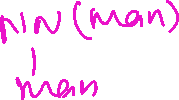 NN (man)
man